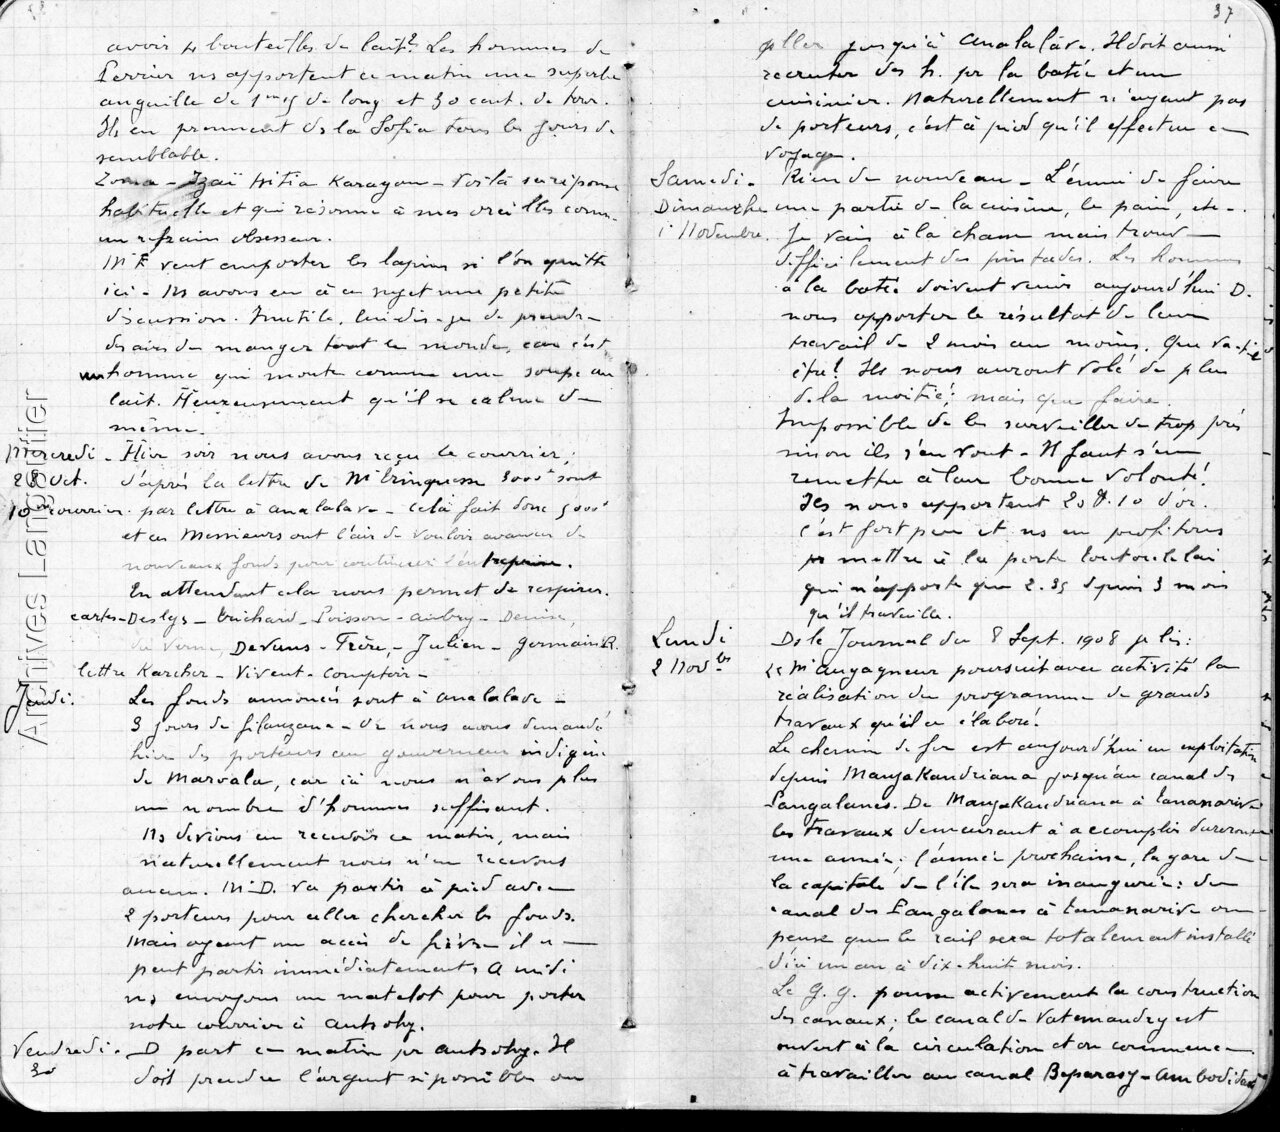 avoir 4 bouteilles de lait? Les hommes de
Perrier ns apportent ce matin une superbe
anguille de 1m15 de long et 30 cent. de tour.
Ils en prennent ds la Sofia tous les jours de
semblable.
Zoma - Izaï hitia Karagou - Voilà sa réponse
habituelle et qui résonne à mes oreilles comme
un refrain obsesseur.
Mr F veut emporter les lapins si l'on quitte
ici - Ns avons eu à ce sujet une petite
discussion. Inutile, lui dis-je de prendre
des airs de manger tout le monde, car c'est
un homme qui monte comme une soupe au
lait. Heureusement qu'il se calme de
même.
Mercredi - Hier soir nous avons reçu le courrier,
28 Oct. d'après la lettre de Mr Trinquesse 3000f sont
10e courrier. par lettre à Analalave - Celà fait donc 5000f
et ces Messieurs ont l'air de vouloir avancer de
nouveaux fonds pour continuer l'entreprise.
En attendant cela nous permet de respirer.
cartes - Deslys - Trichard - Poisson - Aubry - Denise,
du Verne, Devaus - Frère, - Julien - Germain R.
lettre Karcher - Vivent - Comptoir -
Jeudi. Les fonds annoncés sont à Analalave -
3 jours de filanzana - Or nous avons demandé
hier des porteurs au gouverneur indigène
de Marvala, car ici nous n'avons plus
un nombre d'hommes suffisant.
Ns devions en recevoir ce matin, mais
naturellement nous n'en recevons
aucun. Mr D. va partir à pied avec
2 porteurs pour aller chercher les fonds.
Mais ayant un accès de fièvre il ne
peut partir immédiatement. A midi
ns envoyons un matelot pour porter
notre courrier à Antsohy.
Vendredi. D part ce matin pr Antsohy. Il
30 doit prendre l'argent si possible ou
37
aller jusqu'à Analalave. Il doit aussi
recruter des h. pr la batée et un
cuisinier. Naturellement n'ayant pas
de porteurs, c'est à pied qu'il effectue ce
voyage.
Samedi. Rien de nouveau - L'ennui de faire
Dimanche une partie de la cuisine, le pain, etc -.
1 Novembre. Je vais à la chasse mais trouve
difficilement des pintades. Les hommes
à la batée doivent venir aujourd'hui D.
nous apporter le résultat de leur
travail de 2 mois au moins. Que va-t-il
être! Ils nous auront volé de plus
de la moitié! mais que faire.
Impossible de les surveiller de trop près
sinon ils s'en vont - Il faut s'en
remettre à leur bonne volonté!
Ils nous apportent 208.10 d'or.
c'est fort peu et ns en profitons
pr mettre à la porte
qui n'apporte que 2.35 depuis 3 mois
qu'il travaille.
Lundi Ds le Journal du 8 Sept. 1908 je lis:
2 Novbre Le Mr Augagneur poursuit avec activité la
réalisation du programme de grands
travaux qu'il a élaboré.
Le chemin de fer est aujourd'hui en exploitation
depuis Manjakandriana jusqu'au canal des
Pangalanes. De Manjakandriana à Tananarive
les travaux demeurant à accomplir dureront
une année; l'année prochaine, la gare de
la capitale de l'île sera inaugurée: du
canal des Pangalanes à Tananarive on
pense que le rail sera totalement installé
d'ici un an à dix-huit mois.
Le G. G. pousse activement la construction
des canaux; le canal de Vatomandry est
ouvert à la circulation et on commence
à travailler au canal Beparasy - Ambodi
Archives Langstier